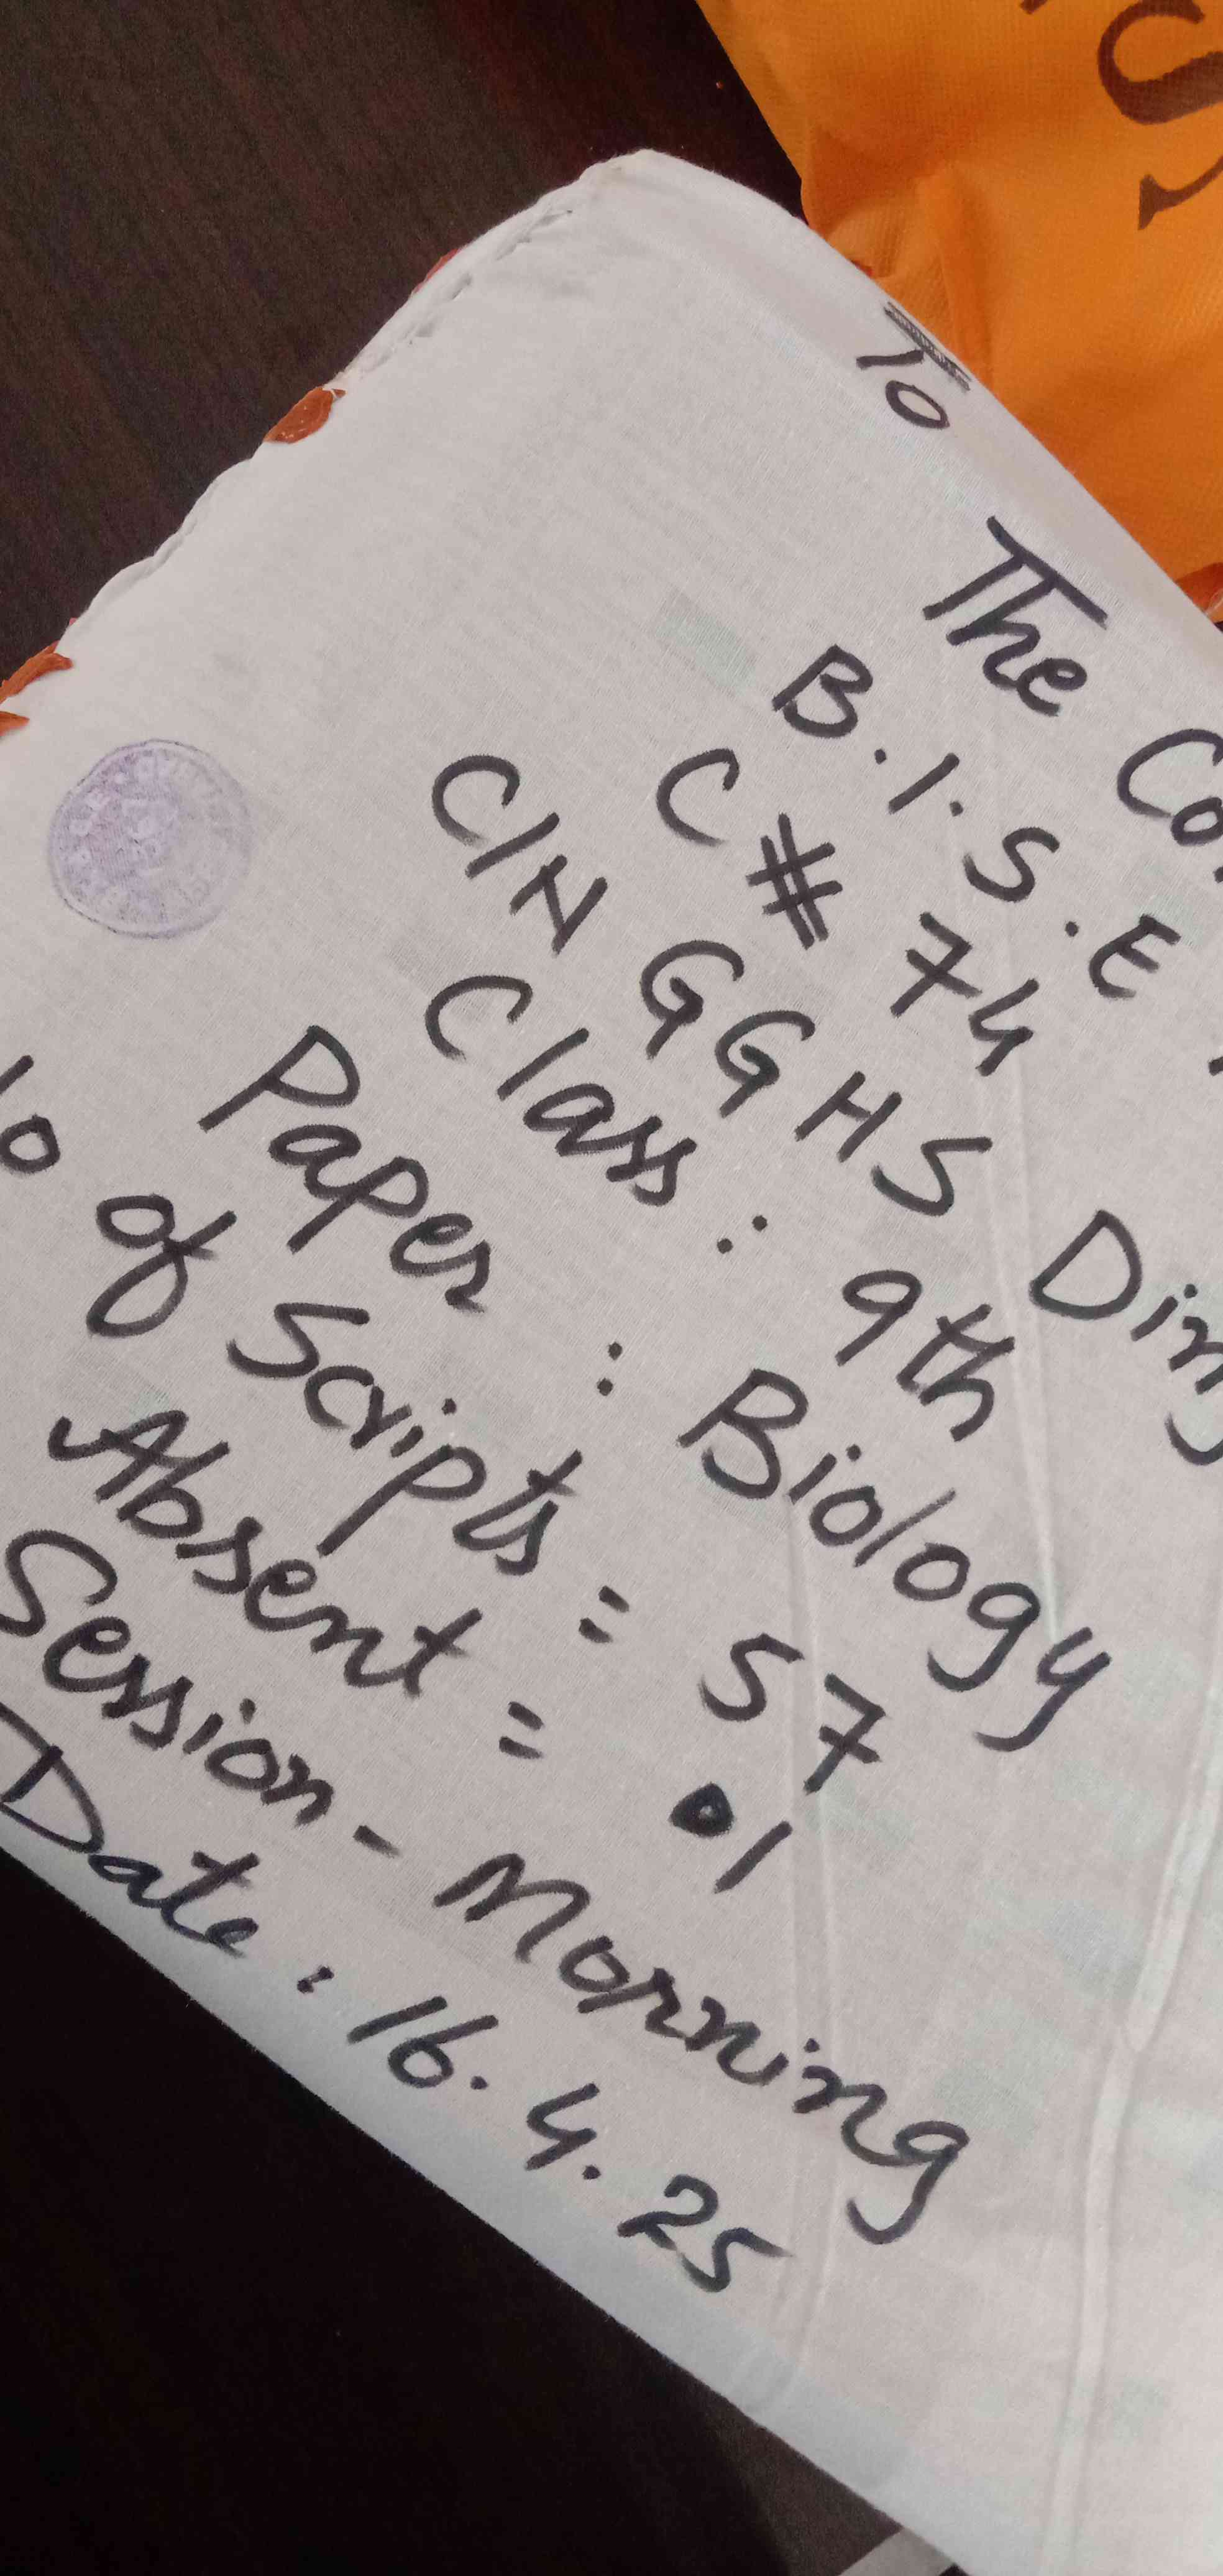 To
The Co
B.I.S.E
C # 74
C/N GGHS Ding
Class : 9th
Paper : Biology
No of Scripts = 57
Absent = 01
Session - Morning
Date : 16.4.25
S